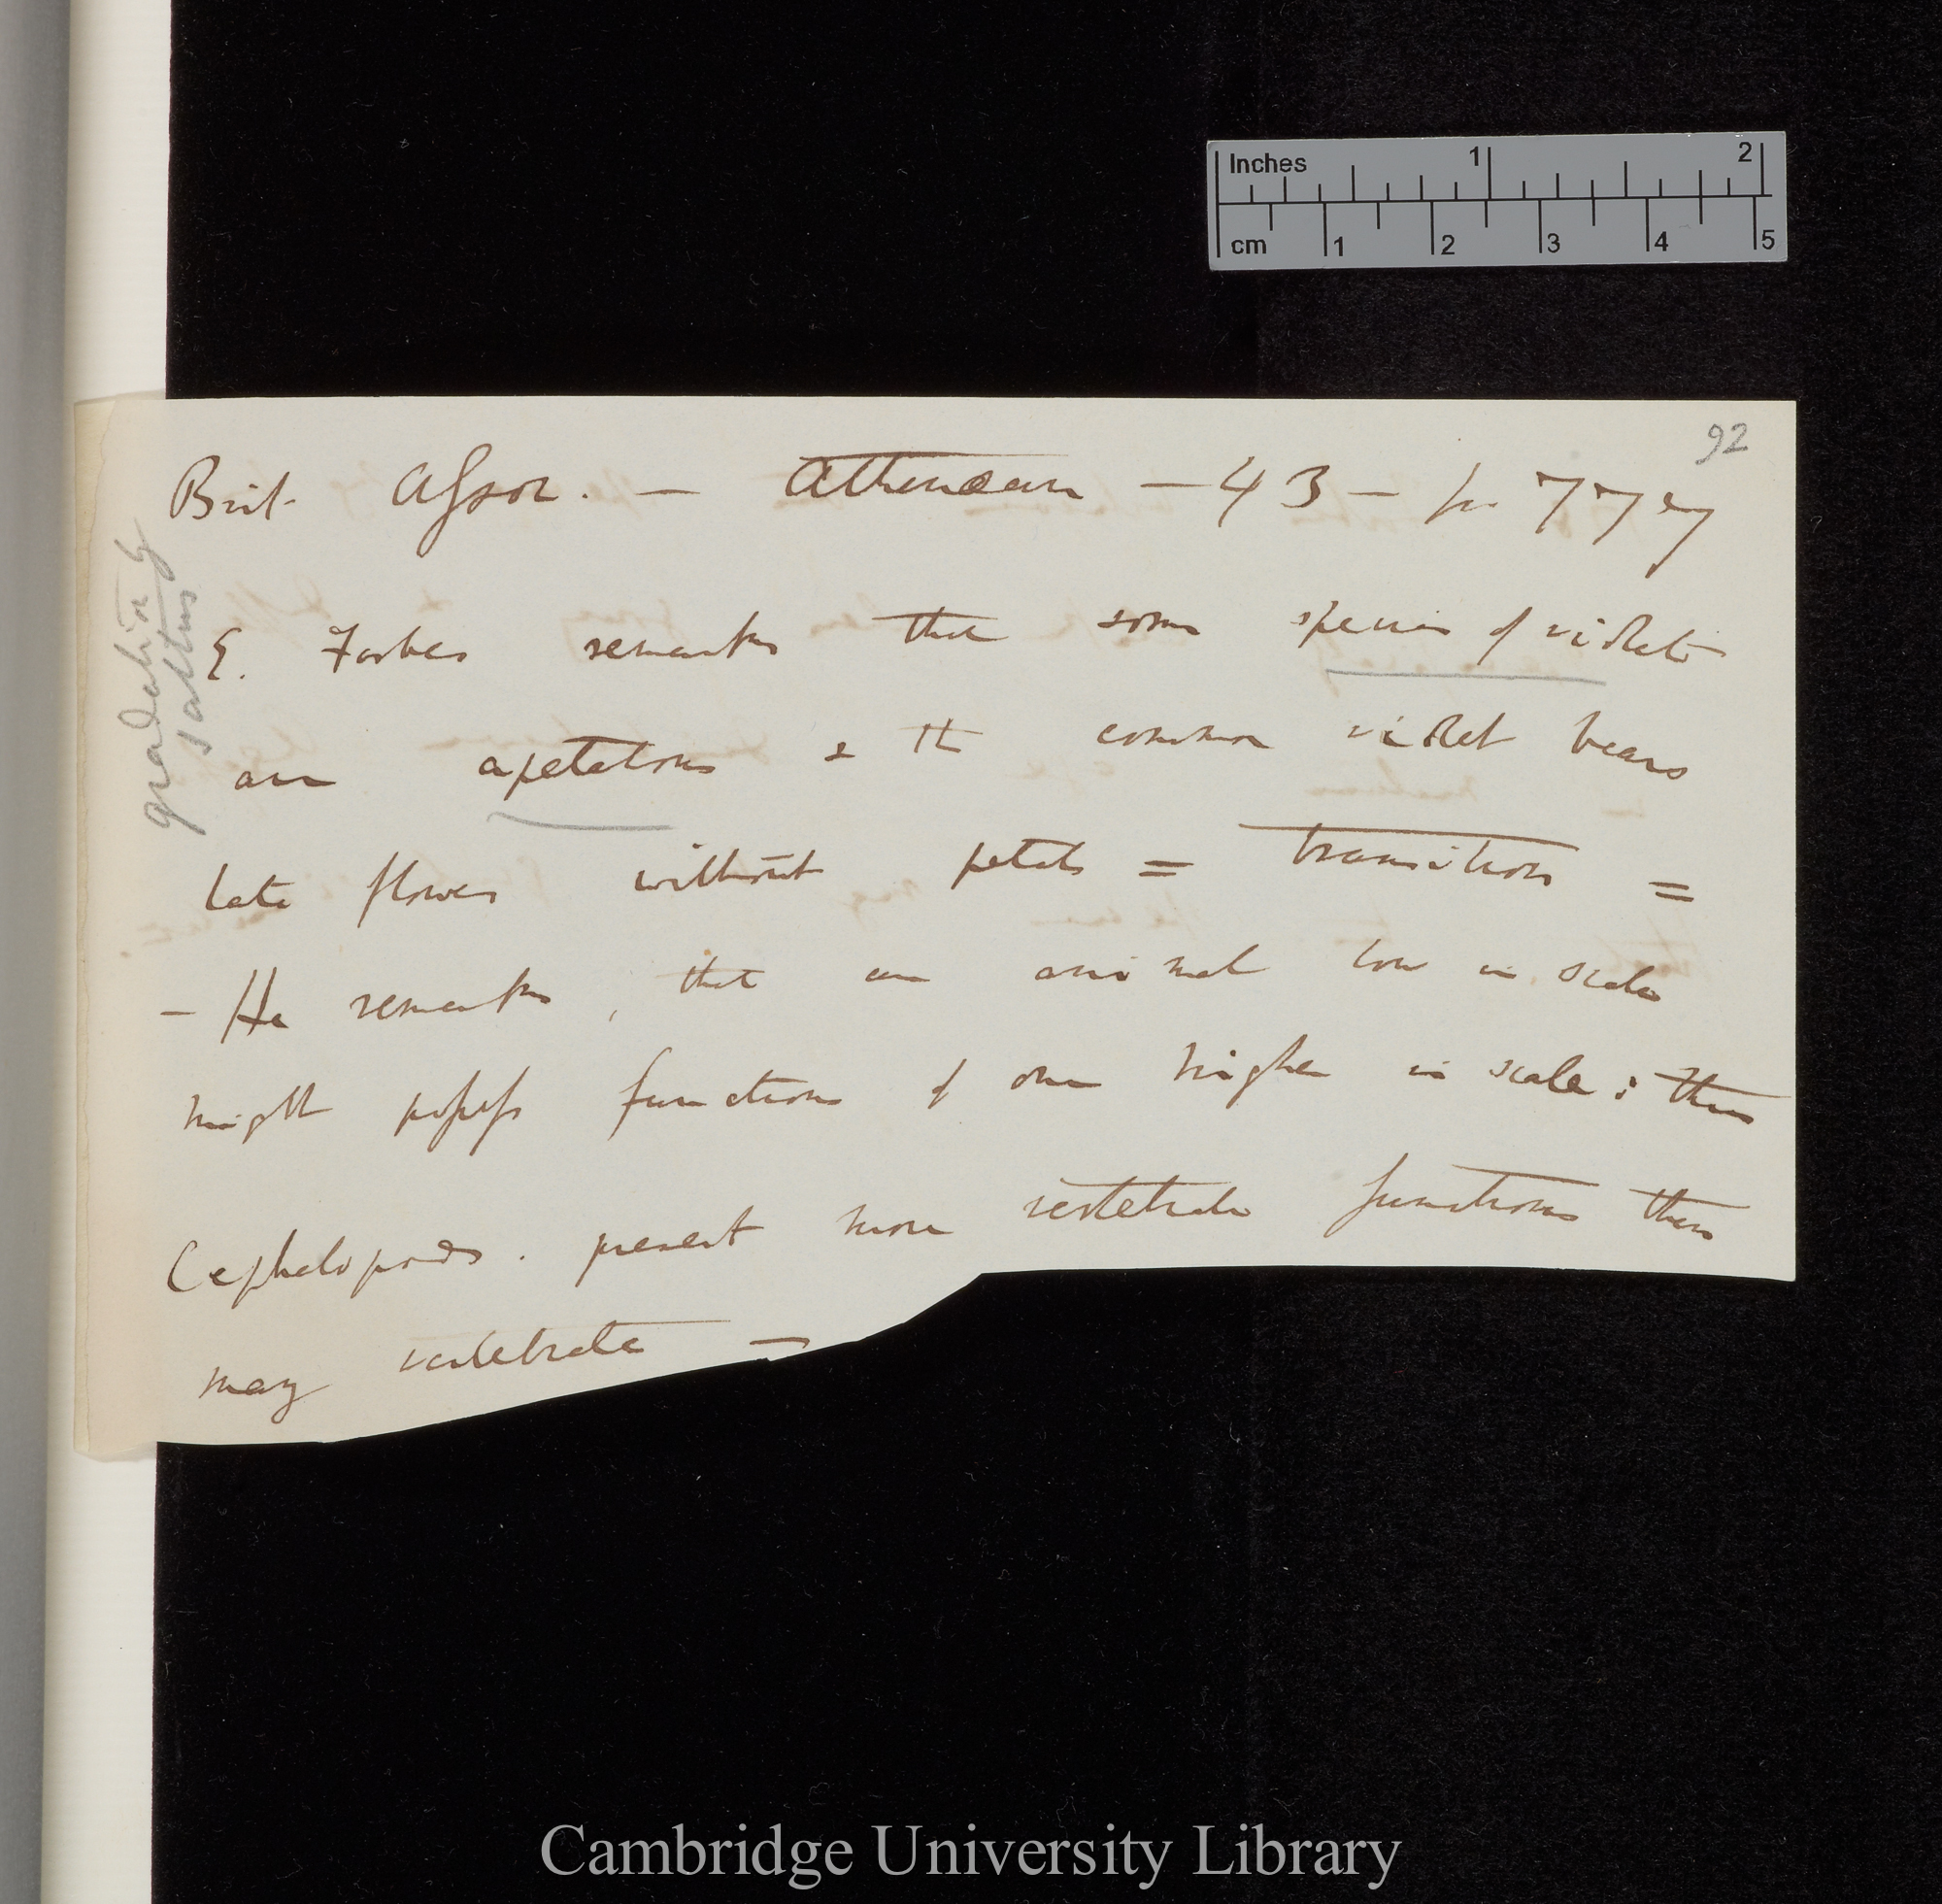 Inches 1 2
cm 1 2 3 4 5
92
Brit Assoc. — Athenaeum — 43 — p. 777
gradation by
saltus
E. Forbes remarks that some species of violets
are apetalous & the common violet bears
late flowers without petals = transition =
— He remarks, that an animal low in scale
might possess functions of one higher in scale: thus
Cephalopods. present more vertebrate functions than
many vertebrate —
Cambridge University Library